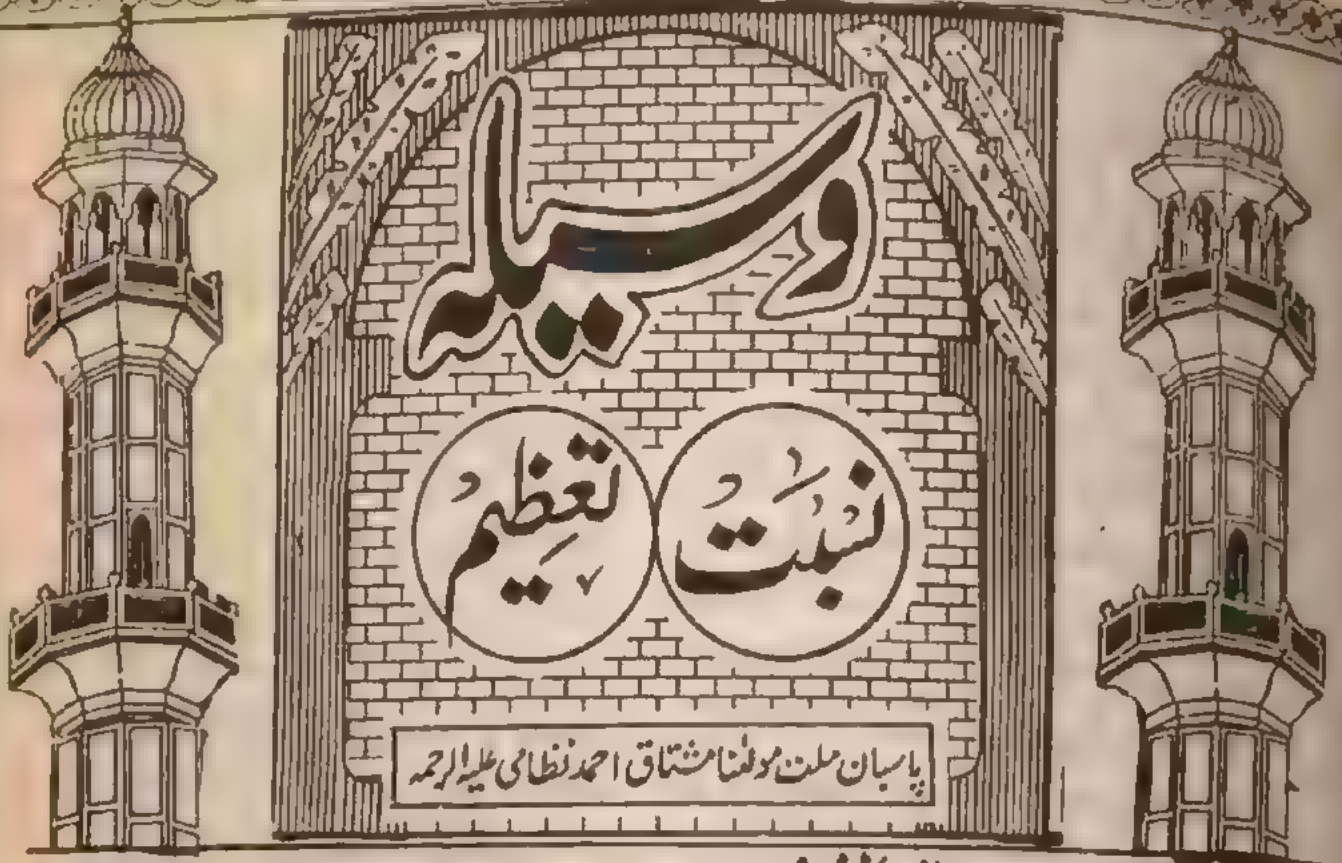 وسیلہ
نسبت تعظیم
پاسبان ملت مولٰنا مشتاق احمد نظامی علیہ الرحمہ